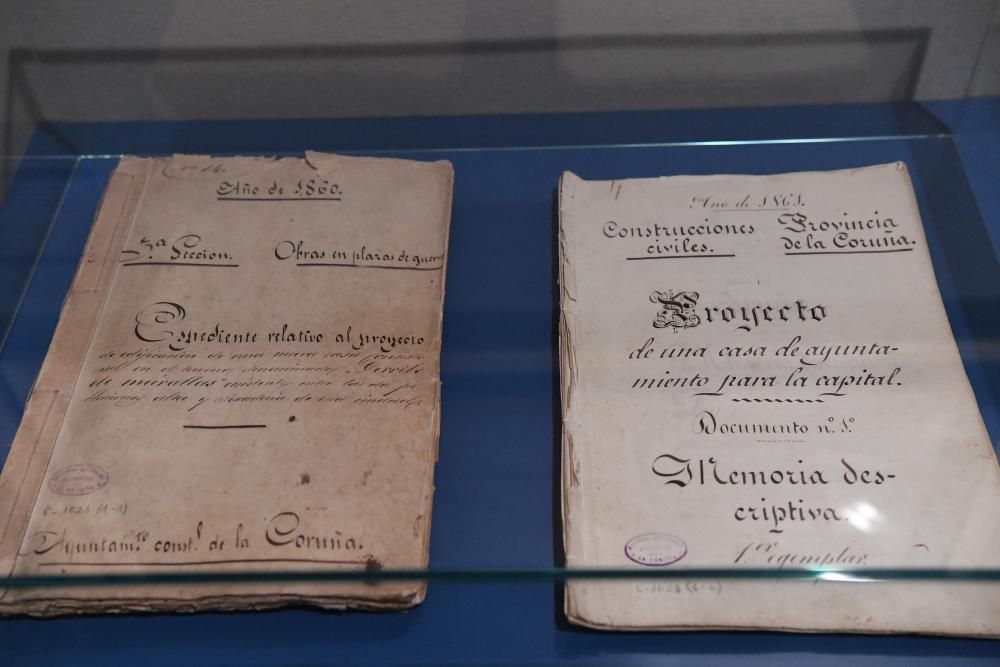 Año de 1860.
3.ª Seccion.
Obras en plazas de guerra
Espediente relativo al proyecto
de edificacion de una nueva casa consisto-
rial en el terreno denominado "Derribo
de murallas" existente entre las dos po-
blaciones alta y de esta ciudad
C-1021 (1-1)
Ayuntam.to const.l de la Coruña.
Año de 1861.
Construcciones
civiles.
Provincia
de la Coruña.
Proyecto
de una casa de ayunta-
miento para la capital.
Documento n.º 1.º
Memoria des-
criptiva.
1.er egemplar.
LA CORUÑA
C-1021 (1-2)